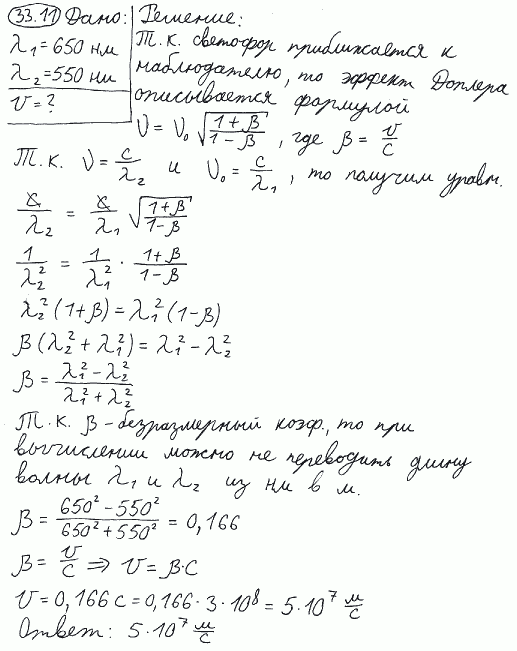 33.11 Дано: Решение:
λ₁=650 нм Т.к. светофор приближается к
λ₂=550 нм наблюдателю, то эффект Доплера
υ=? описывается формулой
ν = ν₀ √((1+β)/(1-β)), где β = υ/c
Т.к. ν = c/λ₂ и ν₀ = c/λ₁, то получим уравн.
c/λ₂ = c/λ₁ √((1+β)/(1-β))
1/λ₂² = 1/λ₁² · (1+β)/(1-β)
λ₂²(1+β)=λ₁²(1-β)
β(λ₂²+λ₁²)=λ₁²-λ₂²
β = (λ₁²-λ₂²)/(λ₁²+λ₂²)
Т.к. β-безразмерный коэф., то при
вычислении можно не переводить длину
волны λ₁ и λ₂ из нм в м.
β = (650²-550²)/(650²+550²) = 0,166
β = υ/c ⇒ υ=β·c
υ=0,166 c=0,166·3·10⁸=5·10⁷ м/с
Ответ: 5·10⁷ м/с